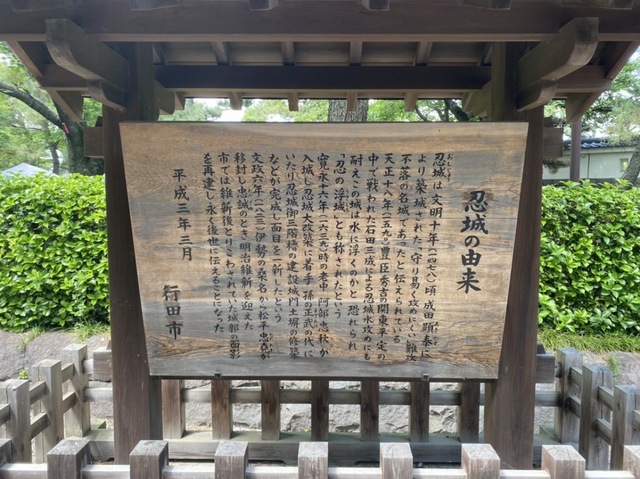 忍城の由来
おしじょう
忍城は文明十年(一四七八)頃成田顕泰に
より築城された。守り易く攻めにくい難攻
不落の名城であったと伝えられている
天正十八年(一五九〇)豊臣秀吉の関東平定の
中で戦われた石田三成による忍城水攻めにも
耐えこの城は水に浮くのかと恐れられ
「忍の浮城」とも称されたという
寛永十六年(一六三九)時の老中阿部忠秋が
入城し忍城大改築に着手、孫正武の代に
いたり忍城御三階櫓の建設城門土塀の修築
などが完成し面目を一新したという
文政六年(一八二三)伊勢の桑名から松平忠堯が
移封し忠誠のとき明治維新を迎えた
市では維新後とりこわされていた城郭の面影
を再建し永く後世に伝えることになった
平成三年三月
行田市